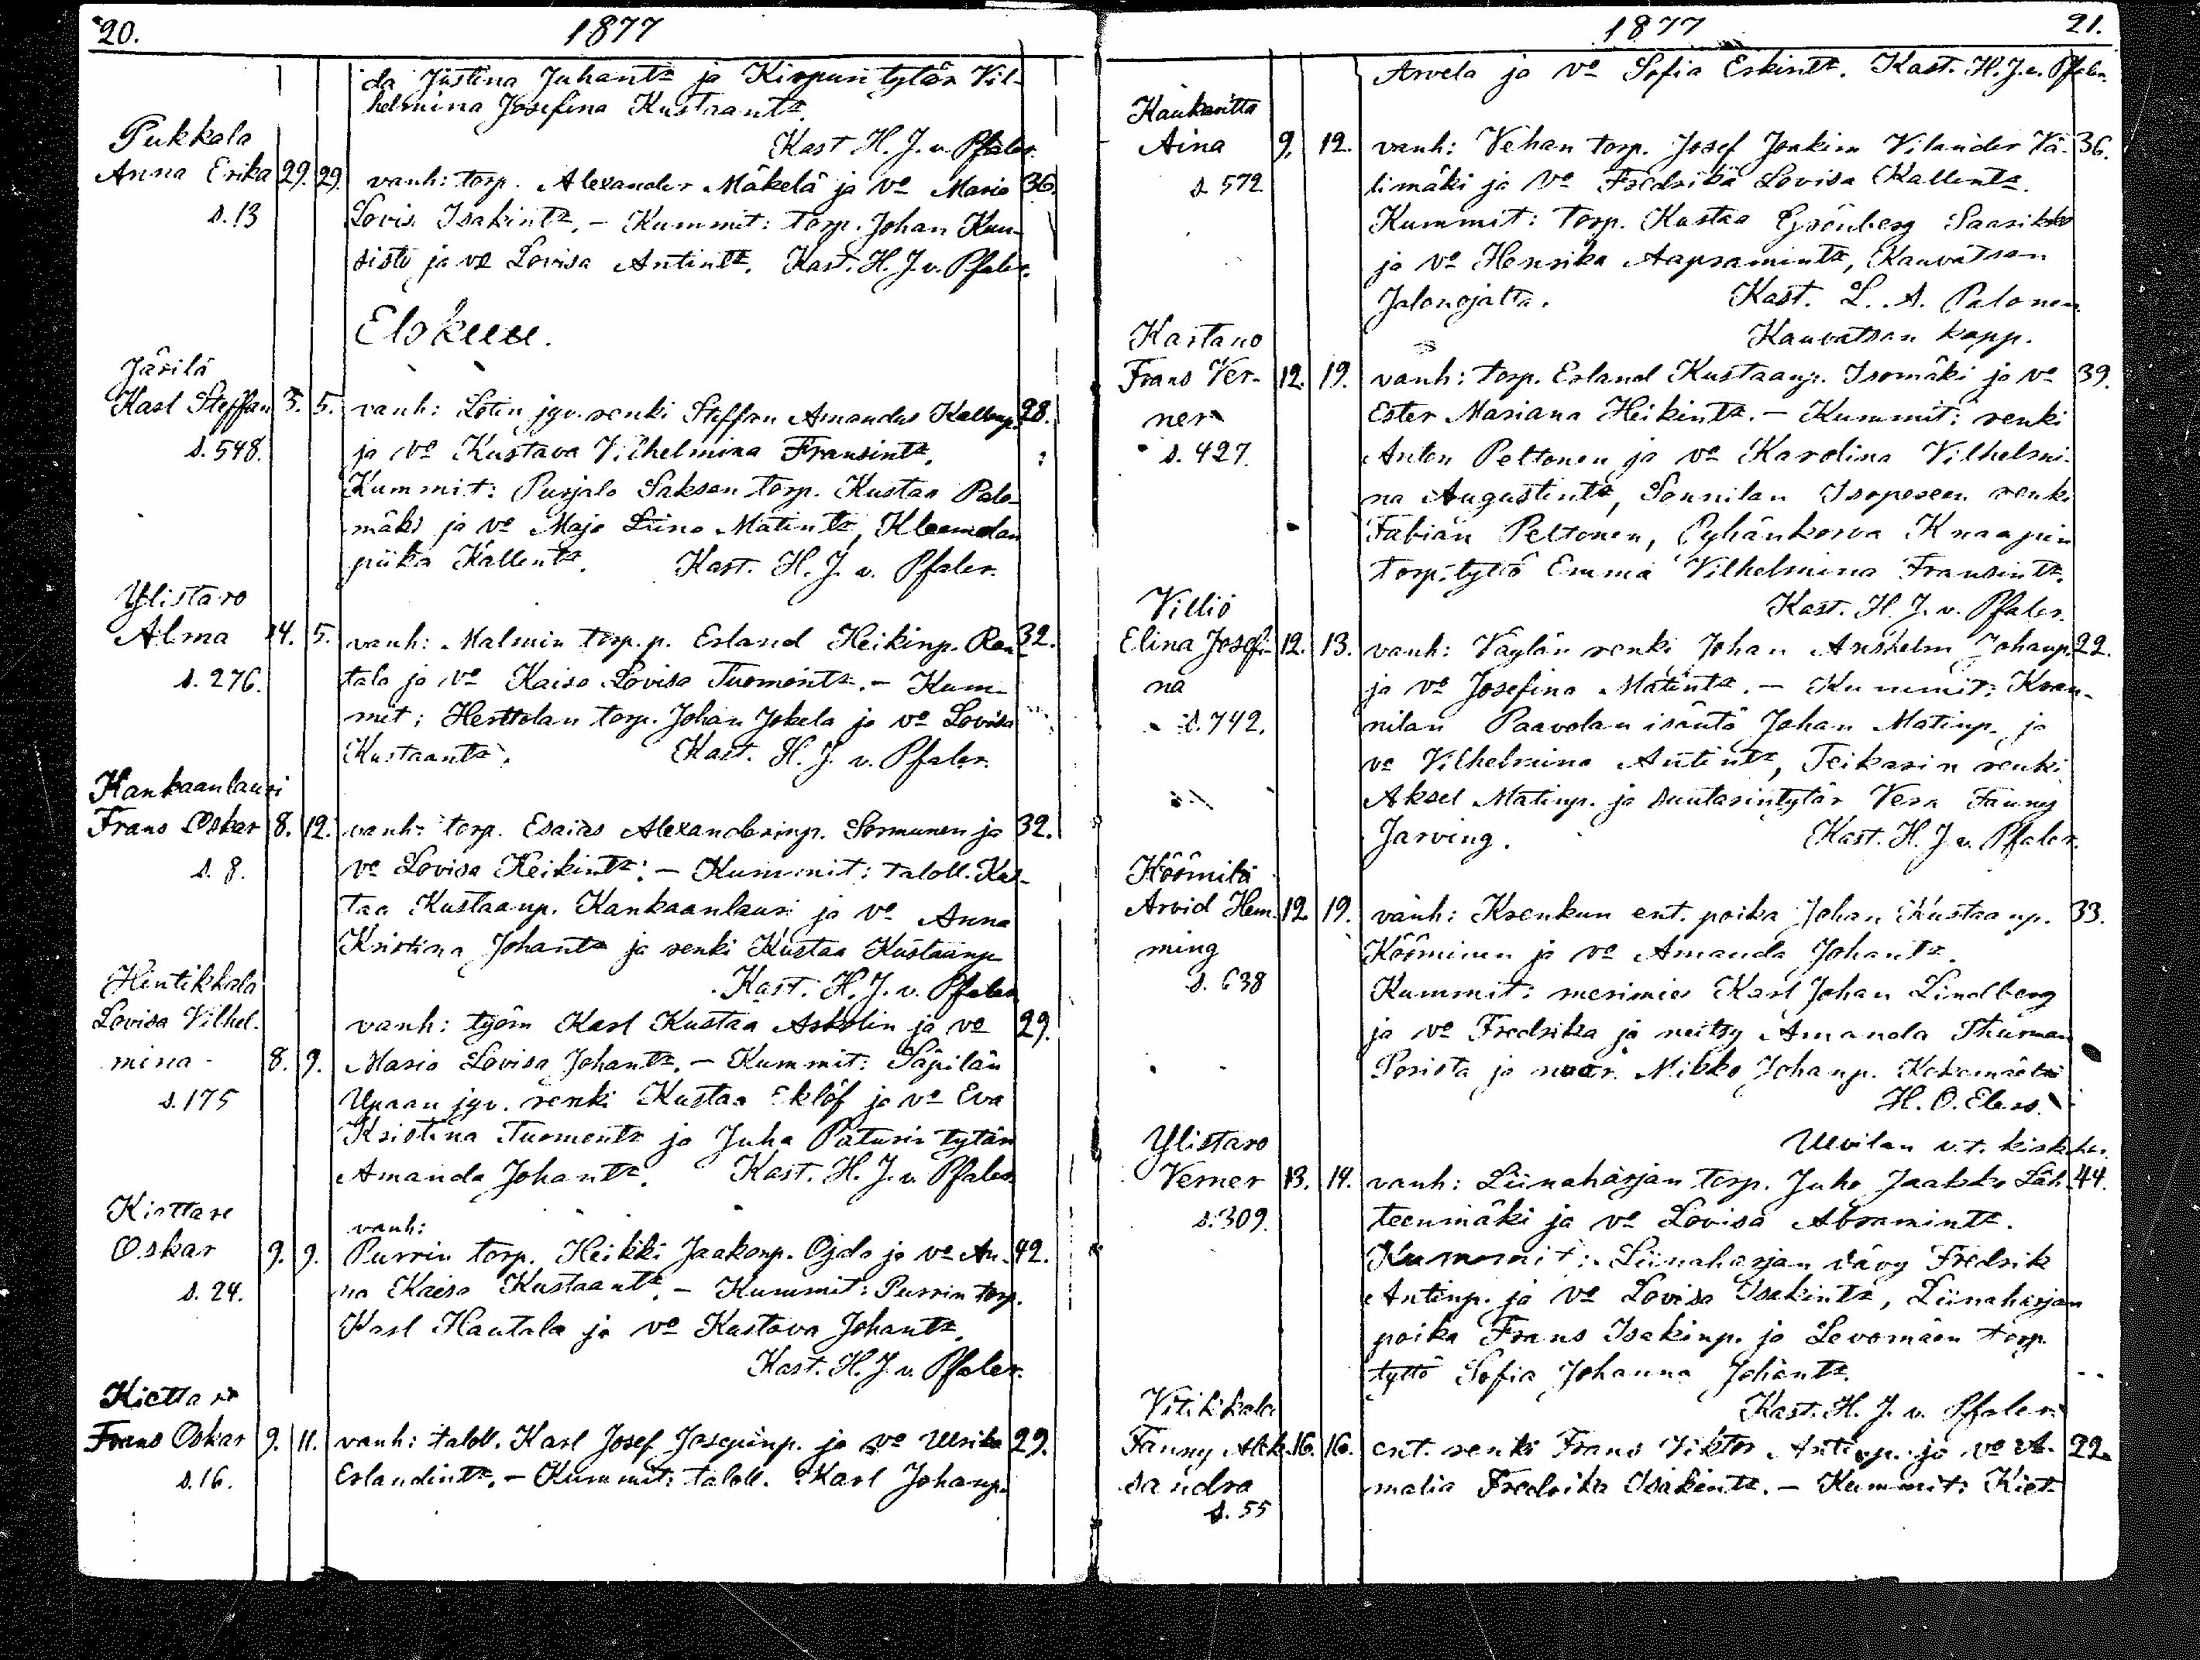 20. 1877
da Justina Juhantr ja Kirpun tytär Vil-
helmina Josefina Kustaantr.
Kast H. J. v. Pfaler.
Pukkala
Anna Erika 29. 29. vanh: torp. Alexander Mäkelä ja vo Maria 36.
s. 13 Lovis. Isakintr. – Kummit: torp. Johan Kuu-
sisto ja vo Lovisa Antintr. Kast. H. J. v. Pfaler.
Elokuu.
Järilä
Karl Steffan 3. 5. vanh: Lotin jgv. renki Steffan Amandus Kallenp. 28.
s. 548. ja vo Kustava Vilhelmina Fransintr.
Kummit: Purjala Saksan torp. Kustaa Palo-
mäki ja vo Maja Liina Matintr, Kleemolan
piika Kallentr. Kast. H. J. v. Pfaler.
Ylistaro
Alma 4. 5. vanh: Malmin torp. p. Erland Heikinp. Ran- 32.
s. 276. tala ja vo Kaisa Lovisa Tuomontr. – Kum-
mit: Herttolan torp. Johan Jokela ja vo Lovisa
Kustaantr. Kast. H. J. v. Pfaler.
Kankaanlauri
Frans Oskar 8. 12. vanh: torp. Esaias Alexanderinp. Sormunen ja 32.
s. 8. vo Lovisa Heikintr. – Kummit: taloll. Kus-
taa Kustaanp. Kankaanlauri ja vo Anna
Kristina Johantr ja renki Kustaa Kustaanp
Kast. H. J. v. Pfaler
Hintikkala
Lovisa Vilhel- vanh: työm Karl Kustaa Askolin ja vo 29.
mina 8. 9. Maria Lovisa Johantr. – Kummit: Säpilän
s. 175 Upaan jgv. renki Kustaa Eklöf ja vo Eva
Kristina Tuomontr ja Juha Paturin tytär
Amanda Johantr. Kast. H. J. v. Pfaler.
Kiettare
vanh:
Oskar 9. 9. Purrin torp. Heikki Jaakonp. Ojala ja vo An- 42.
s. 24. na Kaisa Kustaantr. – Kummit: Purrin torp.
Karl Hautala ja vo Kustava Johantr.
Kast. H. J. v. Pfaler.
Kiettare
Frans Oskar 9. 11. vanh: taloll. Karl Josef Josepinp. ja vo Ulrika 29.
s. 16. Erlandintr. – Kummit: taloll. Karl Johanp.
1877 21.
Arvela ja vo Sofia Eskintr. Kast. H. J. v. Pfaler.
Kaukaritta
Aina 9. 12. vanh: Vehan torp. Josef Joakim Vilander Vä- 36.
s. 572 limäki ja vo Fredrika Lovisa Kallentr.
Kummit: torp. Kustaa Grönberg Saarikko
ja vo Henrika Aapramintr, Kauvatsan
Jalonojalta. Kast. L. A. Palonen
Kauvatsan kapp.
Kartano
Frans Ver- 12. 19. vanh: torp. Erland Kustaanp. Isomäki ja vo 39.
ner Ester Mariana Heikintr. – Kummit: renki
s. 427. Anton Peltonen ja vo Karolina Vilhelmi-
na Augustintr, Sonnilan Isopereen renki
Fabian Peltonen, Pyhänkorva Knaapin
torp. tyttö Emma Vilhelmina Fransintr.
Kast. H. J. v. Pfaler.
Villiö
Elina Josefi- 12. 13. vanh: Väylän renki Johan Anshelm Johanp. 22.
na ja vo Josefina Matintr. – Kummit: Kran-
s. 742. nilan Paavolan isäntä Johan Matinp. ja
vo Vilhelmina Antintr, Teikarin renki
Aksel Matinp. ja suutarintytär Vera Fanny
Jarving. Kast. H. J. v. Pfaler.
Köömilä
Arvid Hem- 12 19. vanh: Krenkun ent. poika Johan Kustaanp. 33.
ming Kööminen ja vo Amanda Johantr.
s. 638 Kummit: merimies Karl Johan Lindberg
ja vo Fredrika ja neitsy Amanda Thurman
Porista ja nuor. Mikko Johanp. Kokemäeltä
H. O. Elers.
Ulvilan v.t. kirkkoher.
Ylistaro
Verner 13. 14. vanh: Liinaharjan torp. Juho Jaakko Läh- 44.
s. 309. teenmäki ja vo Lovisa Abramintr.
Kummit: Liinaharjan vävy Fredrik
Antinp. ja vo Lovisa Isakintr, Liinaharjan
poika Frans Isakinp. ja Levomäen torp
tyttö Sofia Johanna Johantr.
Kast. H. J. v. Pfaler.
Vitikkala
Fanny Alek- 16. 16. ent. renki Frans Viktor Antinp. ja vo A- 22.
sandra malia Fredrika Isakintr. – Kummit: Kiet-
s. 55